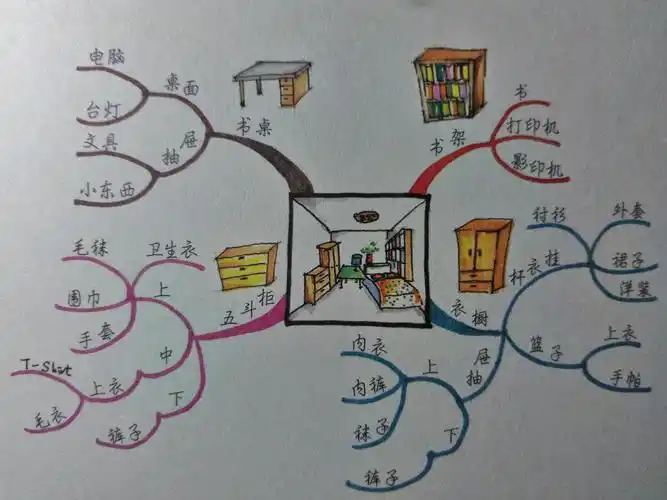 书桌
桌面
电脑
台灯
抽屉
文具
小东西
书架
书
打印机
影印机
五斗柜
上
卫生衣
毛袜
围巾
手套
中
上衣
T-Shirt
毛衣
下
裤子
衣橱
挂衣杆
衬衫
外套
裙子
洋装
篮子
上衣
手帕
抽屉
上
内衣
内裤
袜子
下
裤子